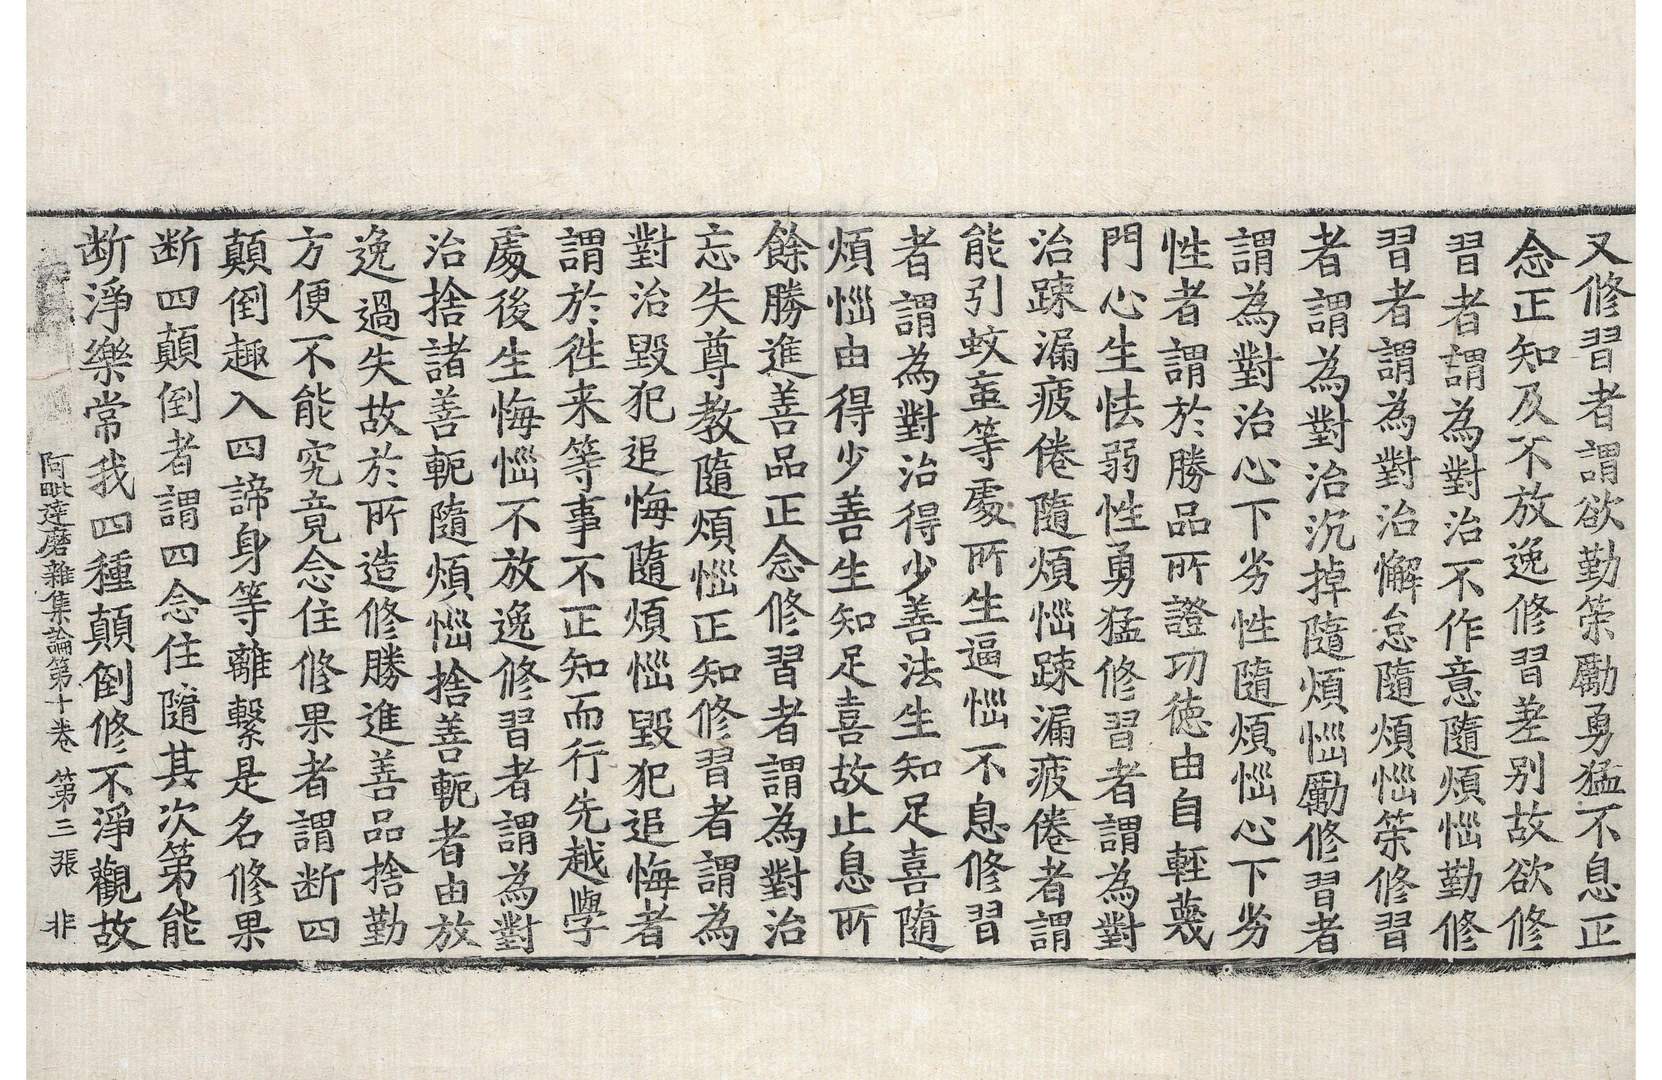 又修習者謂欲勤策勵勇猛不息正
念正知及不放逸修習差別故欲修
習者謂為對治不作意隨煩惱勤修
習者謂為對治懈怠隨煩惱策修習
者謂為對治沉掉隨煩惱勵修習者
謂為對治心下劣性隨煩惱心下劣
性者謂於勝品所證功德由自輕蔑
門心生怯弱性勇猛修習者謂為對
治踈漏疲倦隨煩惱踈漏疲倦者謂
能引蚊䖟等處所生逼惱不息修習
者謂為對治得少善法生知足喜隨
煩惱由得少善生知足喜故止息所
餘勝進善品正念修習者謂為對治
忘失尊教隨煩惱正知修習者謂為
對治毀犯追悔隨煩惱毀犯追悔者
謂於徃来等事不正知而行先越學
處後生悔惱不放逸修習者謂為對
治捨諸善軛隨煩惱捨善軛者由放
逸過失故於所造修勝進善品捨勤
方便不能究竟念住修果者謂断四
顛倒趣入四諦身等離繫是名修果
断四顛倒者謂四念住隨其次第能
断淨樂常我四種顛倒修不淨觀故
阿毗達磨雜集論第十卷 第三張 非